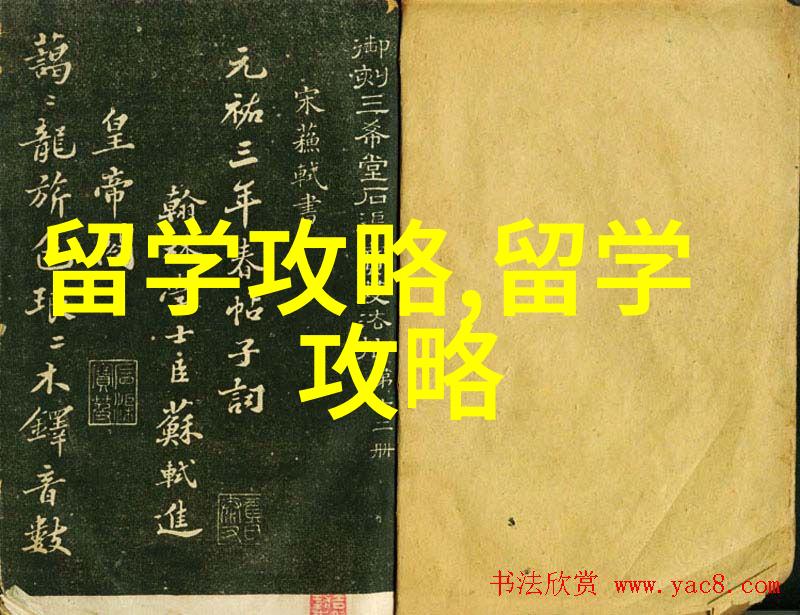 御刻三希堂石渠寶笈法帖第十二册
宋蘇軾書
元祐三年春帖子詞
翰林學士臣蘇軾進
皇帝閤
藹〻龍旂色琅〻木鐸音數
留学攻略,留学
攻略
书法欣赏 www.yac8.com